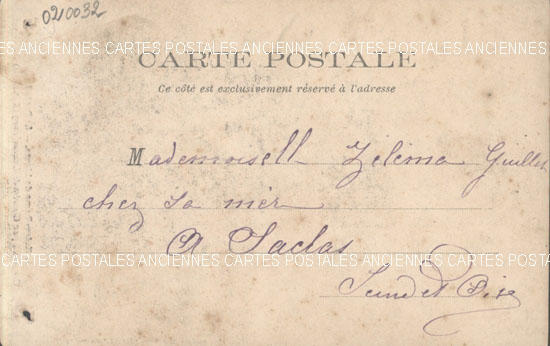 020032
ANCIENNES CARTES POSTALES ANCIENNES CARTES POSTALES ANCIENNES
CARTE POSTALE
Ce côté est exclusivement réservé à l'adresse
Mademoisell Zéléma Guillet
chez sa mèr
A Saclas
CARTES POSTALES ANCIENNES CARTES POSTALES ANCIENNES CARTES
Seine et Oise